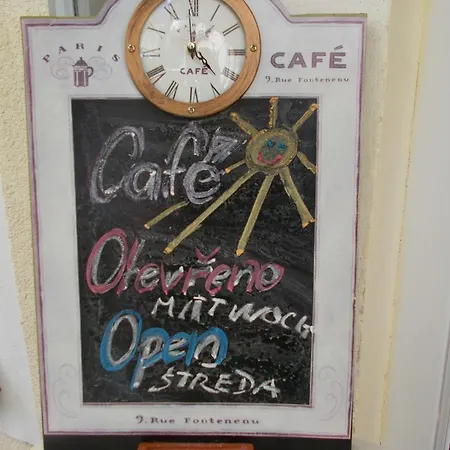 PARIS
CAFÉ
CAFÉ
9. Rue Fontenenu
Café
Otevřeno
MATWOCH
Open
STREDA
9. Rue Fontenenu